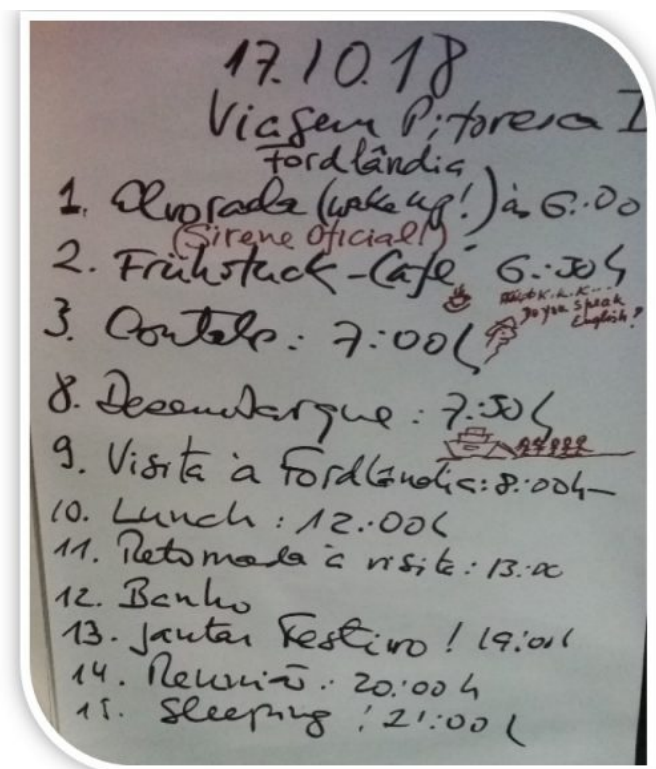 17.10.18
Viagem Pitoresca I
Fordlândia
1. Alvorada (wake up!) às 6:00
(Sirene Oficial!)
2. Frühstück - Café 6:30h
Do you speak
English?
3. Contato: 7:00h
8. Desembarque: 7:30h
9. Visita à Fordlândia: 8:00h-
10. Lunch: 12:00h
11. Retomada à visita: 13:00
12. Banho
13. Jantar Festivo! 19:00h
14. Reunião: 20:00h
15. Sleeping! 21:00h